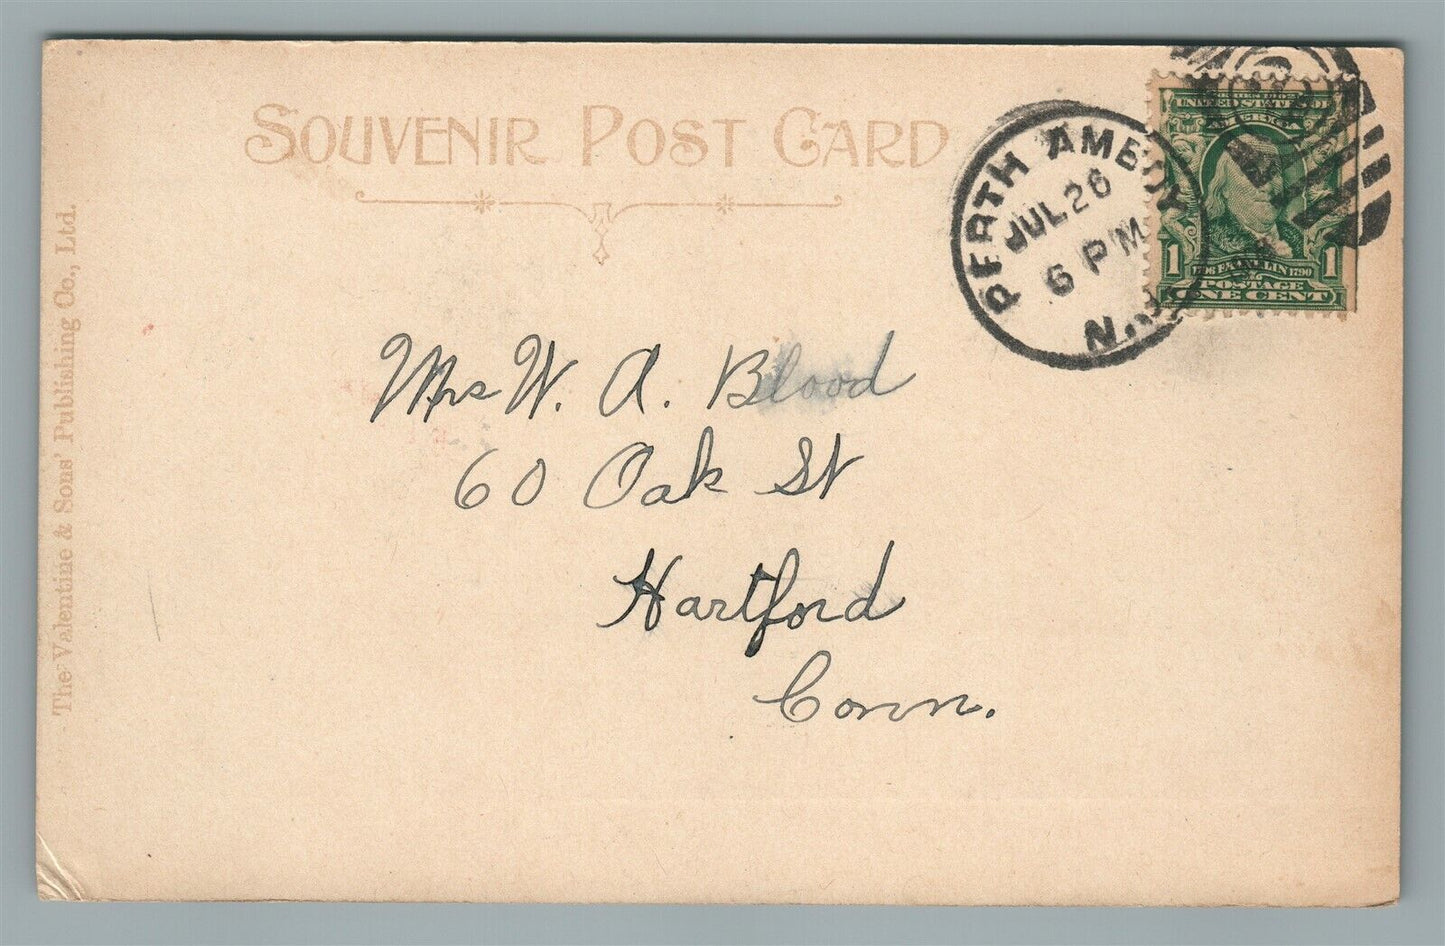 SOUVENIR POST CARD
The Valentine & Sons' Publishing Co., Ltd.
PERTH AMBOY
JUL 26
6 PM
N.J.
UNITED STATES OF
AMERICA
1 1706 FRANKLIN 1790 1
POSTAGE
ONE CENT
Mrs W. A. Blood
60 Oak St
Hartford
Conn.